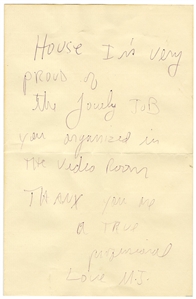 House I'm very
proud of
the Lovely JoB
you organized in
the Video Room
Thank you
a true
Love M.J.